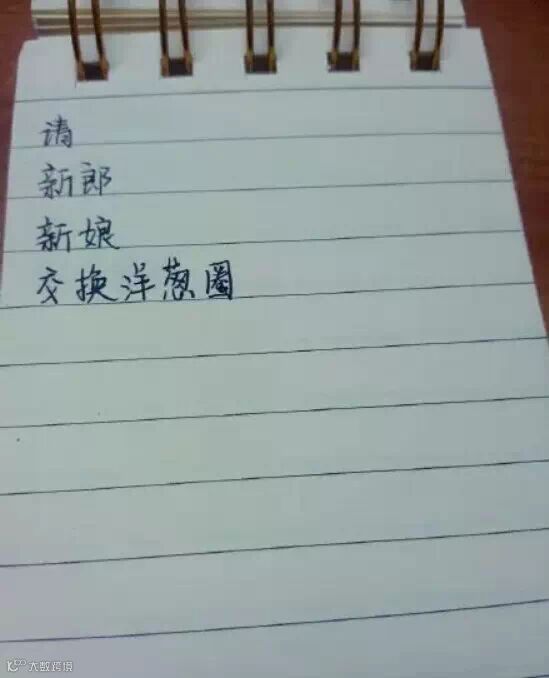 请
新郎
新娘
交换洋葱圈
大数跨境